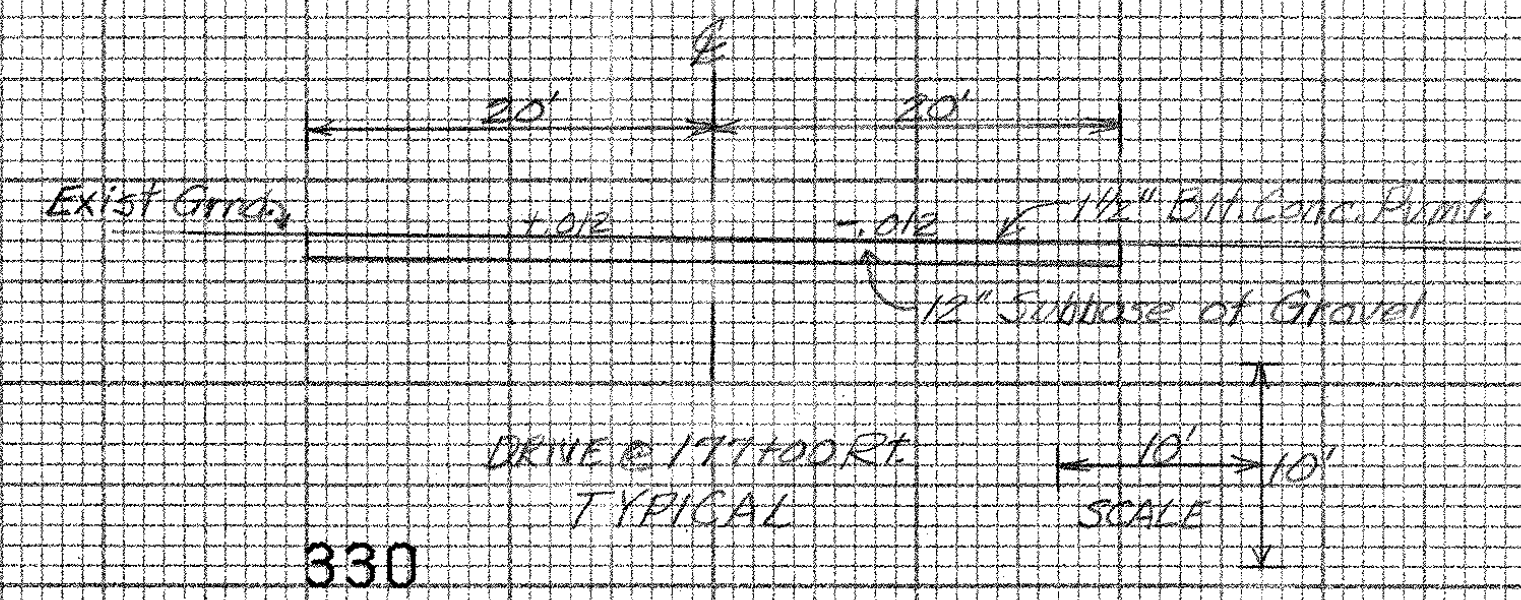 ℄
20' 20'
Exist Grnd.
+.012 -.012
1½" Bit. Conc. Pvmt.
12" Subbase of Gravel
DRIVE @ 177+00 Rt.
TYPICAL
10'
10'
SCALE
330